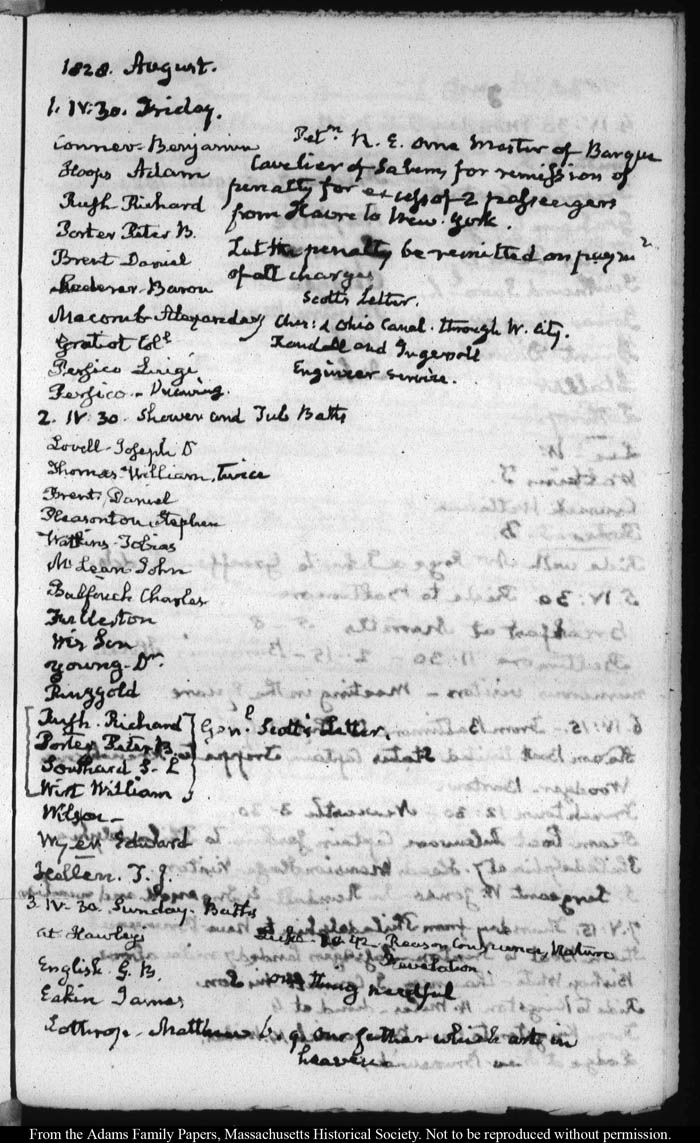 1828. August.
1. IV:30. Friday.
Conner-Benjamin
Petn. N. E. Orne Master of Barque
Hoops Adam
Cavelier of Salem for remission of
Rush-Richard
penalty for excess of 2 passengers
from Havre to New-York.
Porter Peter B.
Let the penalty be remitted on paymt.
Brent Daniel
of all charges
Lederer-Baron
Scott's Letter.
Macomb-Alexander
Ches: & Ohio Canal. through W. City.
Gratiot Coll.
Randall and Ingersoll
Persico Luigi
Engineer service.
Persico-Drawing.
2. IV:30. Shower and Tub Baths
Lovell-Joseph Dr
Thomas-William, twice
Brent, Daniel
Pleasonton Stephen
Watkins-Tobias
McLean John
Bulfinch Charles
Fulleston
his Son
Young-Dr.
Ringgold
Rush. Richard
Genl. Scott's Letter.
Porter Peter B.
Southard S. L
Wirt William
Wilson-
Wyer Edward
3. IV.30. Sunday-Baths
at Hawley's
Luke 10.42. Reason Conscience, Nature
Revelation
English. G. B.
one thing needful
Eakin James
Lothrop-Matthew 6.9. Our father which art in
heaven
From the Adams Family Papers, Massachusetts Historical Society. Not to be reproduced without permission.